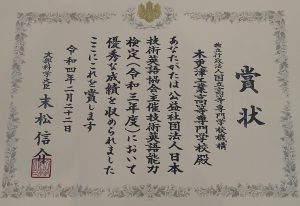 賞状
独立行政法人国立高等専門学校機構
木更津工業高等専門学校殿
あなたがたは公益社団法人日本
技術英語協会主催技術英語能力
検定(令和三年度)において
優秀な成績を収められました
ここにこれを賞します
令和四年二月二十二日
文部科学大臣 末松信介